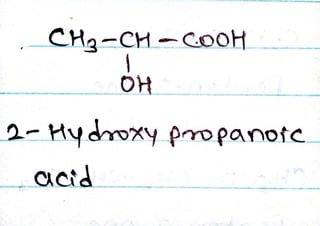 CH3-CH-COOH
|
OH
2-Hydroxy propanoic
acid